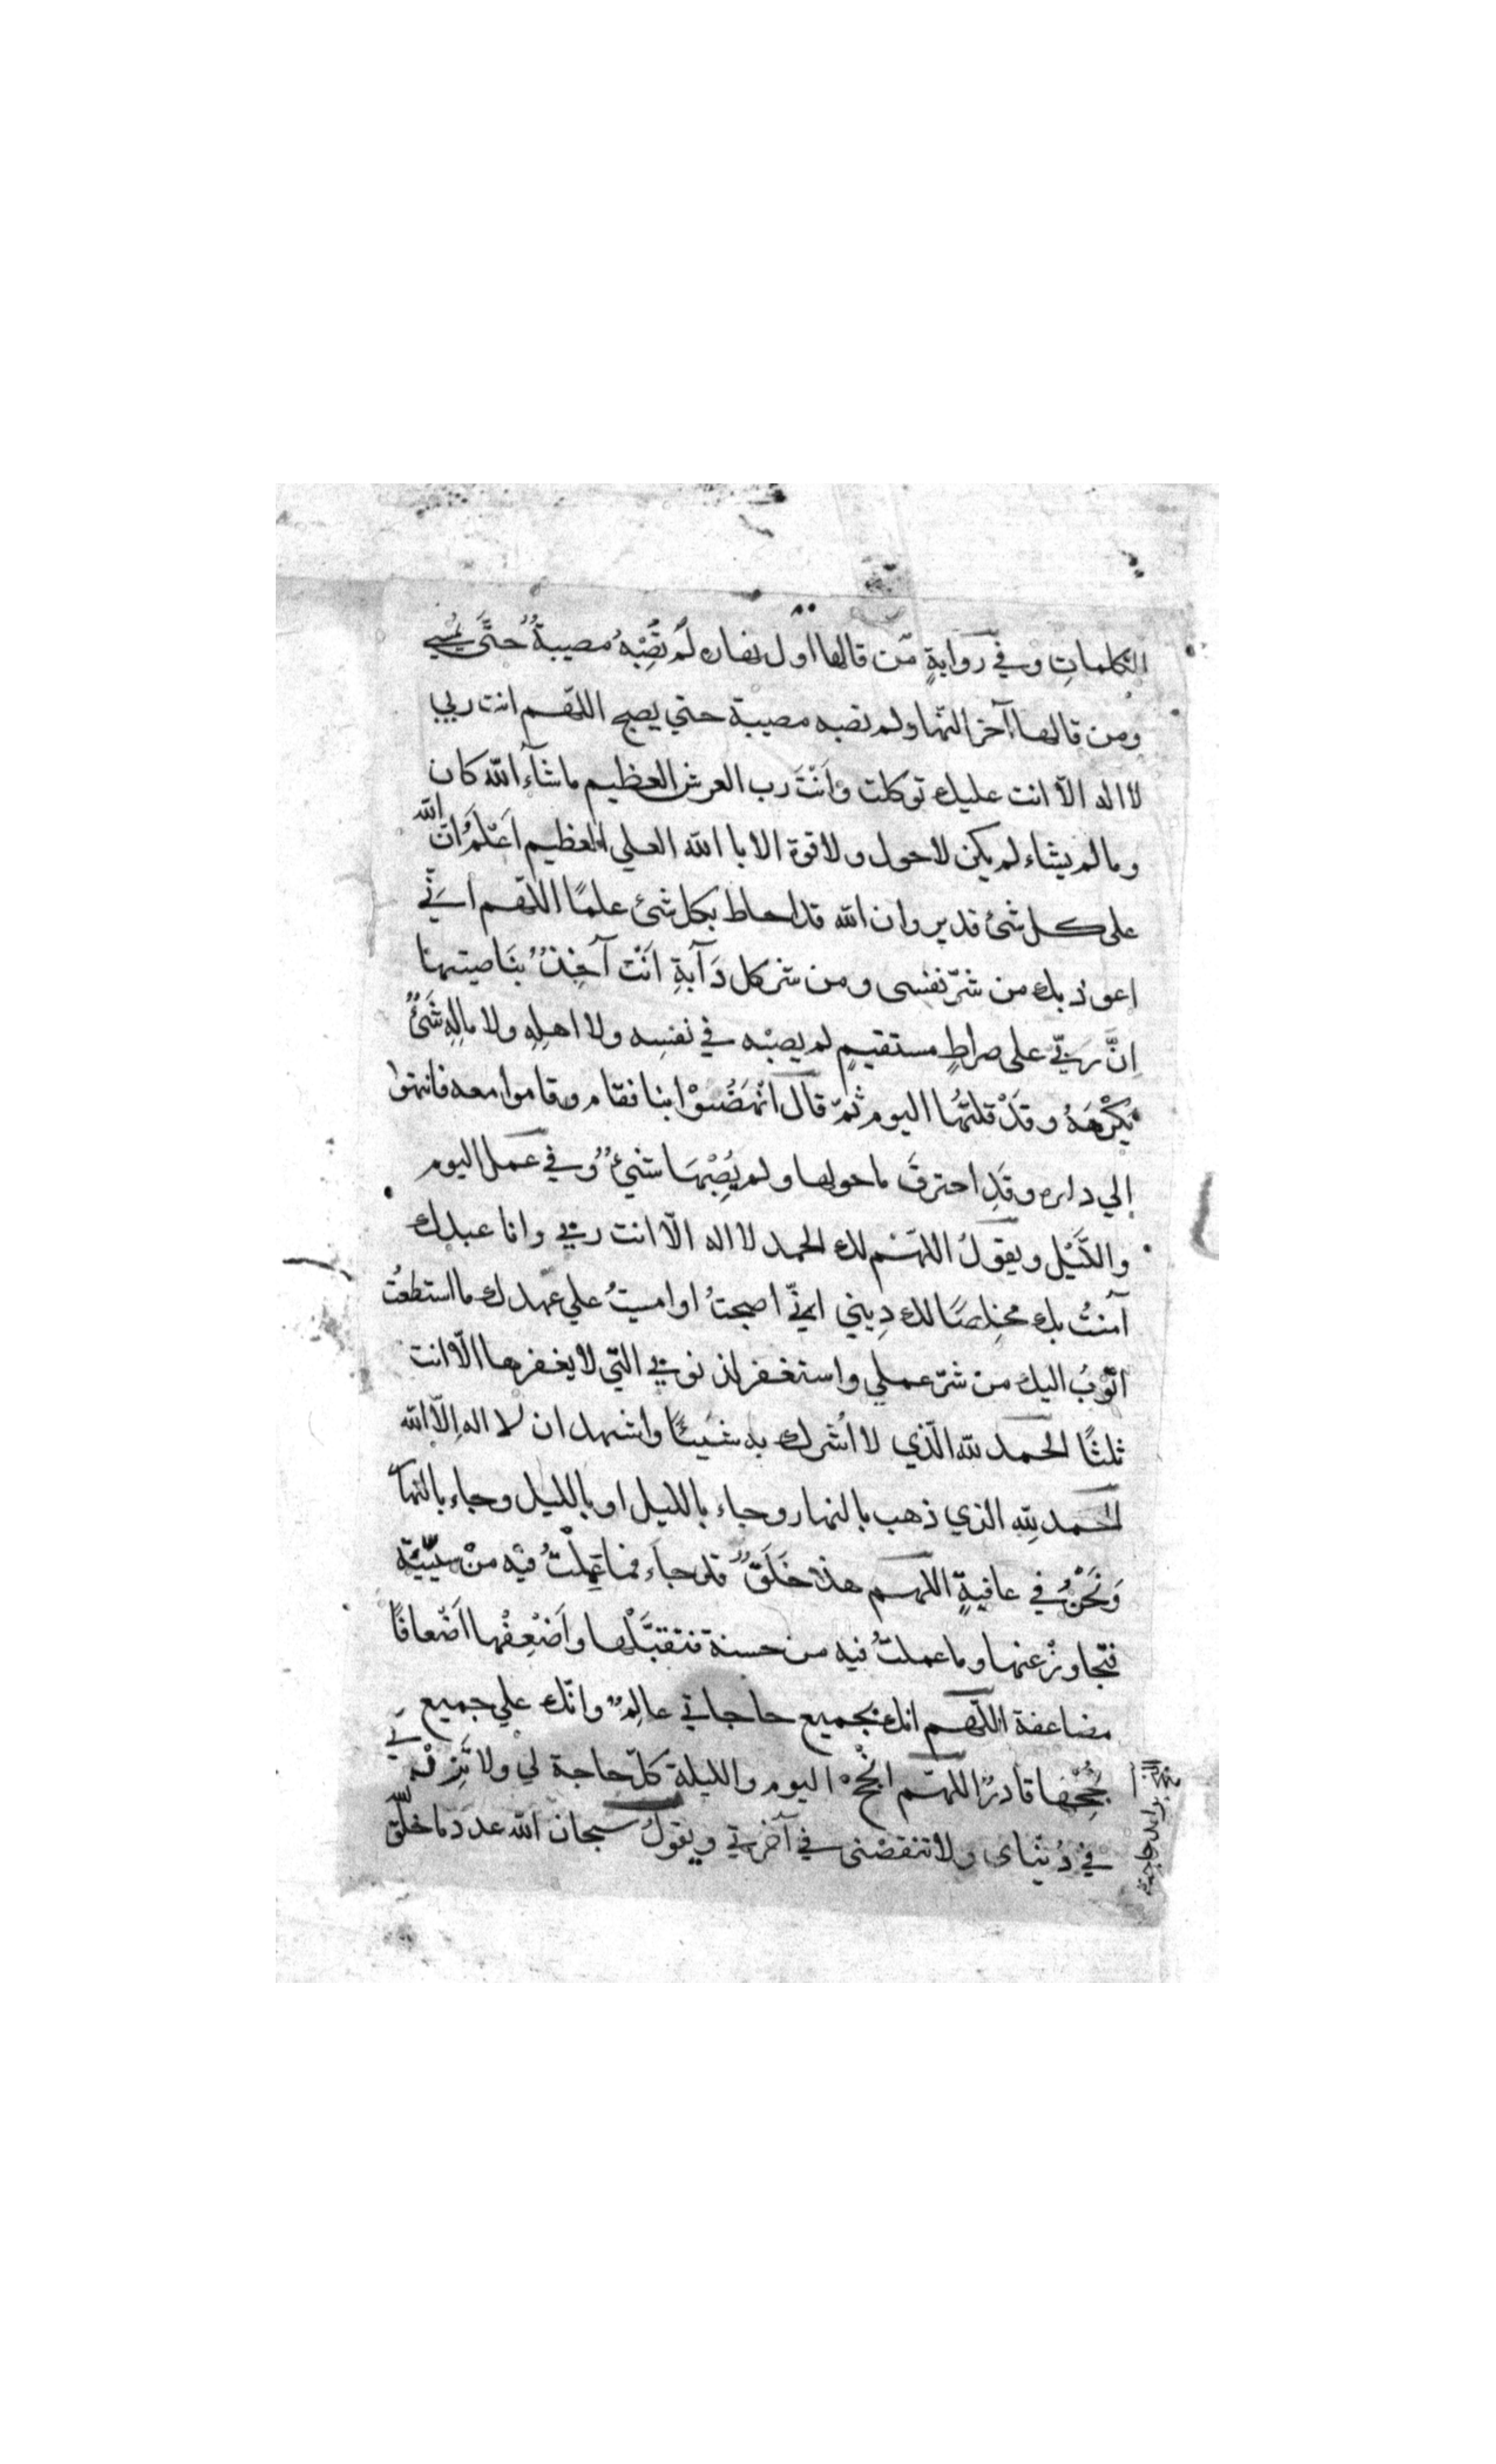 الكلماتِ وفي روايةٍ مّن قالها اول نهاره لَمْ تُصِبْهُ مصيبةٌ حتَّى يُمسي
ومن قالها آخر النّهار لم تصبه مصيبة حتي يصبح اللّهم انت ربي
لا اله الّا انت عليك توكلت وَاَنْتَ رب العرش العظيم ما شآءُ اللّه كان
وما لم يشاء لم يكن لا حول ولا قوة الا با اللّه العلي العظيم اَعْلَمُ انّ اللّه
على كل شئ قدير وان اللّه قد احاط بكل شئ علمًا اللّهم انّي
اعوذ بك من شرّ نفسى ومن شر كل دَآبةٍ اَنْتَ آخِذٌ بنَاصيتها
اِنَّ ربّي على صراطٍ مستقيمٍ لم يصبْه في نفسِه ولا اهلِهِ ولا مالِهِ شَئٌ
يَكْرَهَهُ وقَدْ قلتُها اليوم ثمّ قال انْهَضُوْا بنا فقام وقاموا معه فانتهوا
إلي داره وقَدِ احترقَ ما حولها ولم يُصِبْهَا شئٌ وفي عمل اليوم
والَّيْل ويقولُ اللهّم لك الحمد لا اله الّا انت ربّي وانا عبدك
آمنتُ بك مخلِصًا لك دِيني انّي اصبحتُ او امسيتُ علي عهدك ما استطعتُ
اتُوبُ اليك من شرّ عملي واستغفر لذنوبي التّي لا يغفرها الّا انت
ثلثًا الحمد للّه الّذي لا اُشرك به شيئًا واشهد ان لا اله الّا اللّه
الحمد للّه الذي ذهب بالنهار وجاء بالليل او بالليل وجاء بالنهار
وَنَحْنُ في عافيةٍ اللهم هذا خَلَقٌ قد جاءَ فما عَمِلْتُ فيْه منْ سيّئة
فتجاوزْ عنها وما عملتُ فيه من حسنة فتقبَّلْها واَضْعِفْها اَضْعافًا
مضاعفة اللّهم انك بجميع حاجاتي عالمٌ وانّك علي جميع
نُجْحِها قادرٌ اللهّم انْجِحْ اليوم والليلة كلّ حاجة لي ولا تَزِدْني
في دُنياى ولا تنقصْنى في آخرتي ويقولُ سبحان اللّه عدد ما خلق اللّه